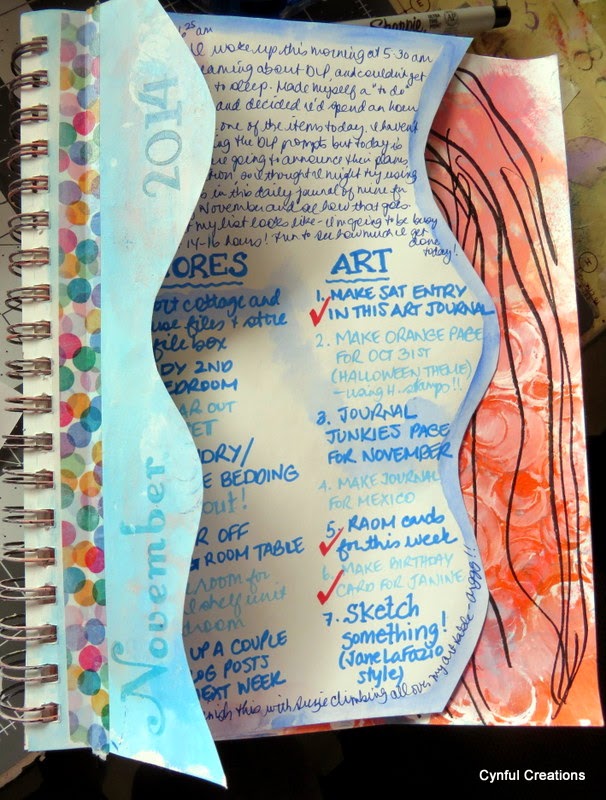 Sharpie
November
2014
25 am
woke up this morning at 5:30 am
eaming about DLP, and couldn't get
to sleep. Made myself a "to do"
and decided i'd spend an hour
one of the items today. i haven't
ing the DLP prompts but today is
're going to announce their plans
tion one thought i might try using
s in this daily journal of mine for
November and see how that goes.
t my list looks like - i'm going to be busy
14-16 hours! Fun to see how much i get
done
today!
ORES
ort cottage and
use files + store
file box
DY 2ND
EDROOM
AR OUT
ET
NDRY/
E BEDDING
out!
R OFF
G ROOM TABLE
room for
shelf unit
room
UP A COUPLE
OG POSTS
NEXT WEEK
ART
1. MAKE SAT ENTRY
IN THIS ART JOURNAL
2. MAKE ORANGE PAGE
FOR OCT 31ST
(HALLOWEEN THEME)
- using H. stamps!!
3. JOURNAL
JUNKIES PAGE
FOR NOVEMBER
4. MAKE JOURNAL
FOR MEXICO
5. RAOM cards
for this week
6. MAKE BIRTHDAY
CARD FOR JANINE
7. Sketch
something!
(Jane LaFazio
style)
nish this with Suzie climbing all over my art table - arggg!!
Cynful Creations